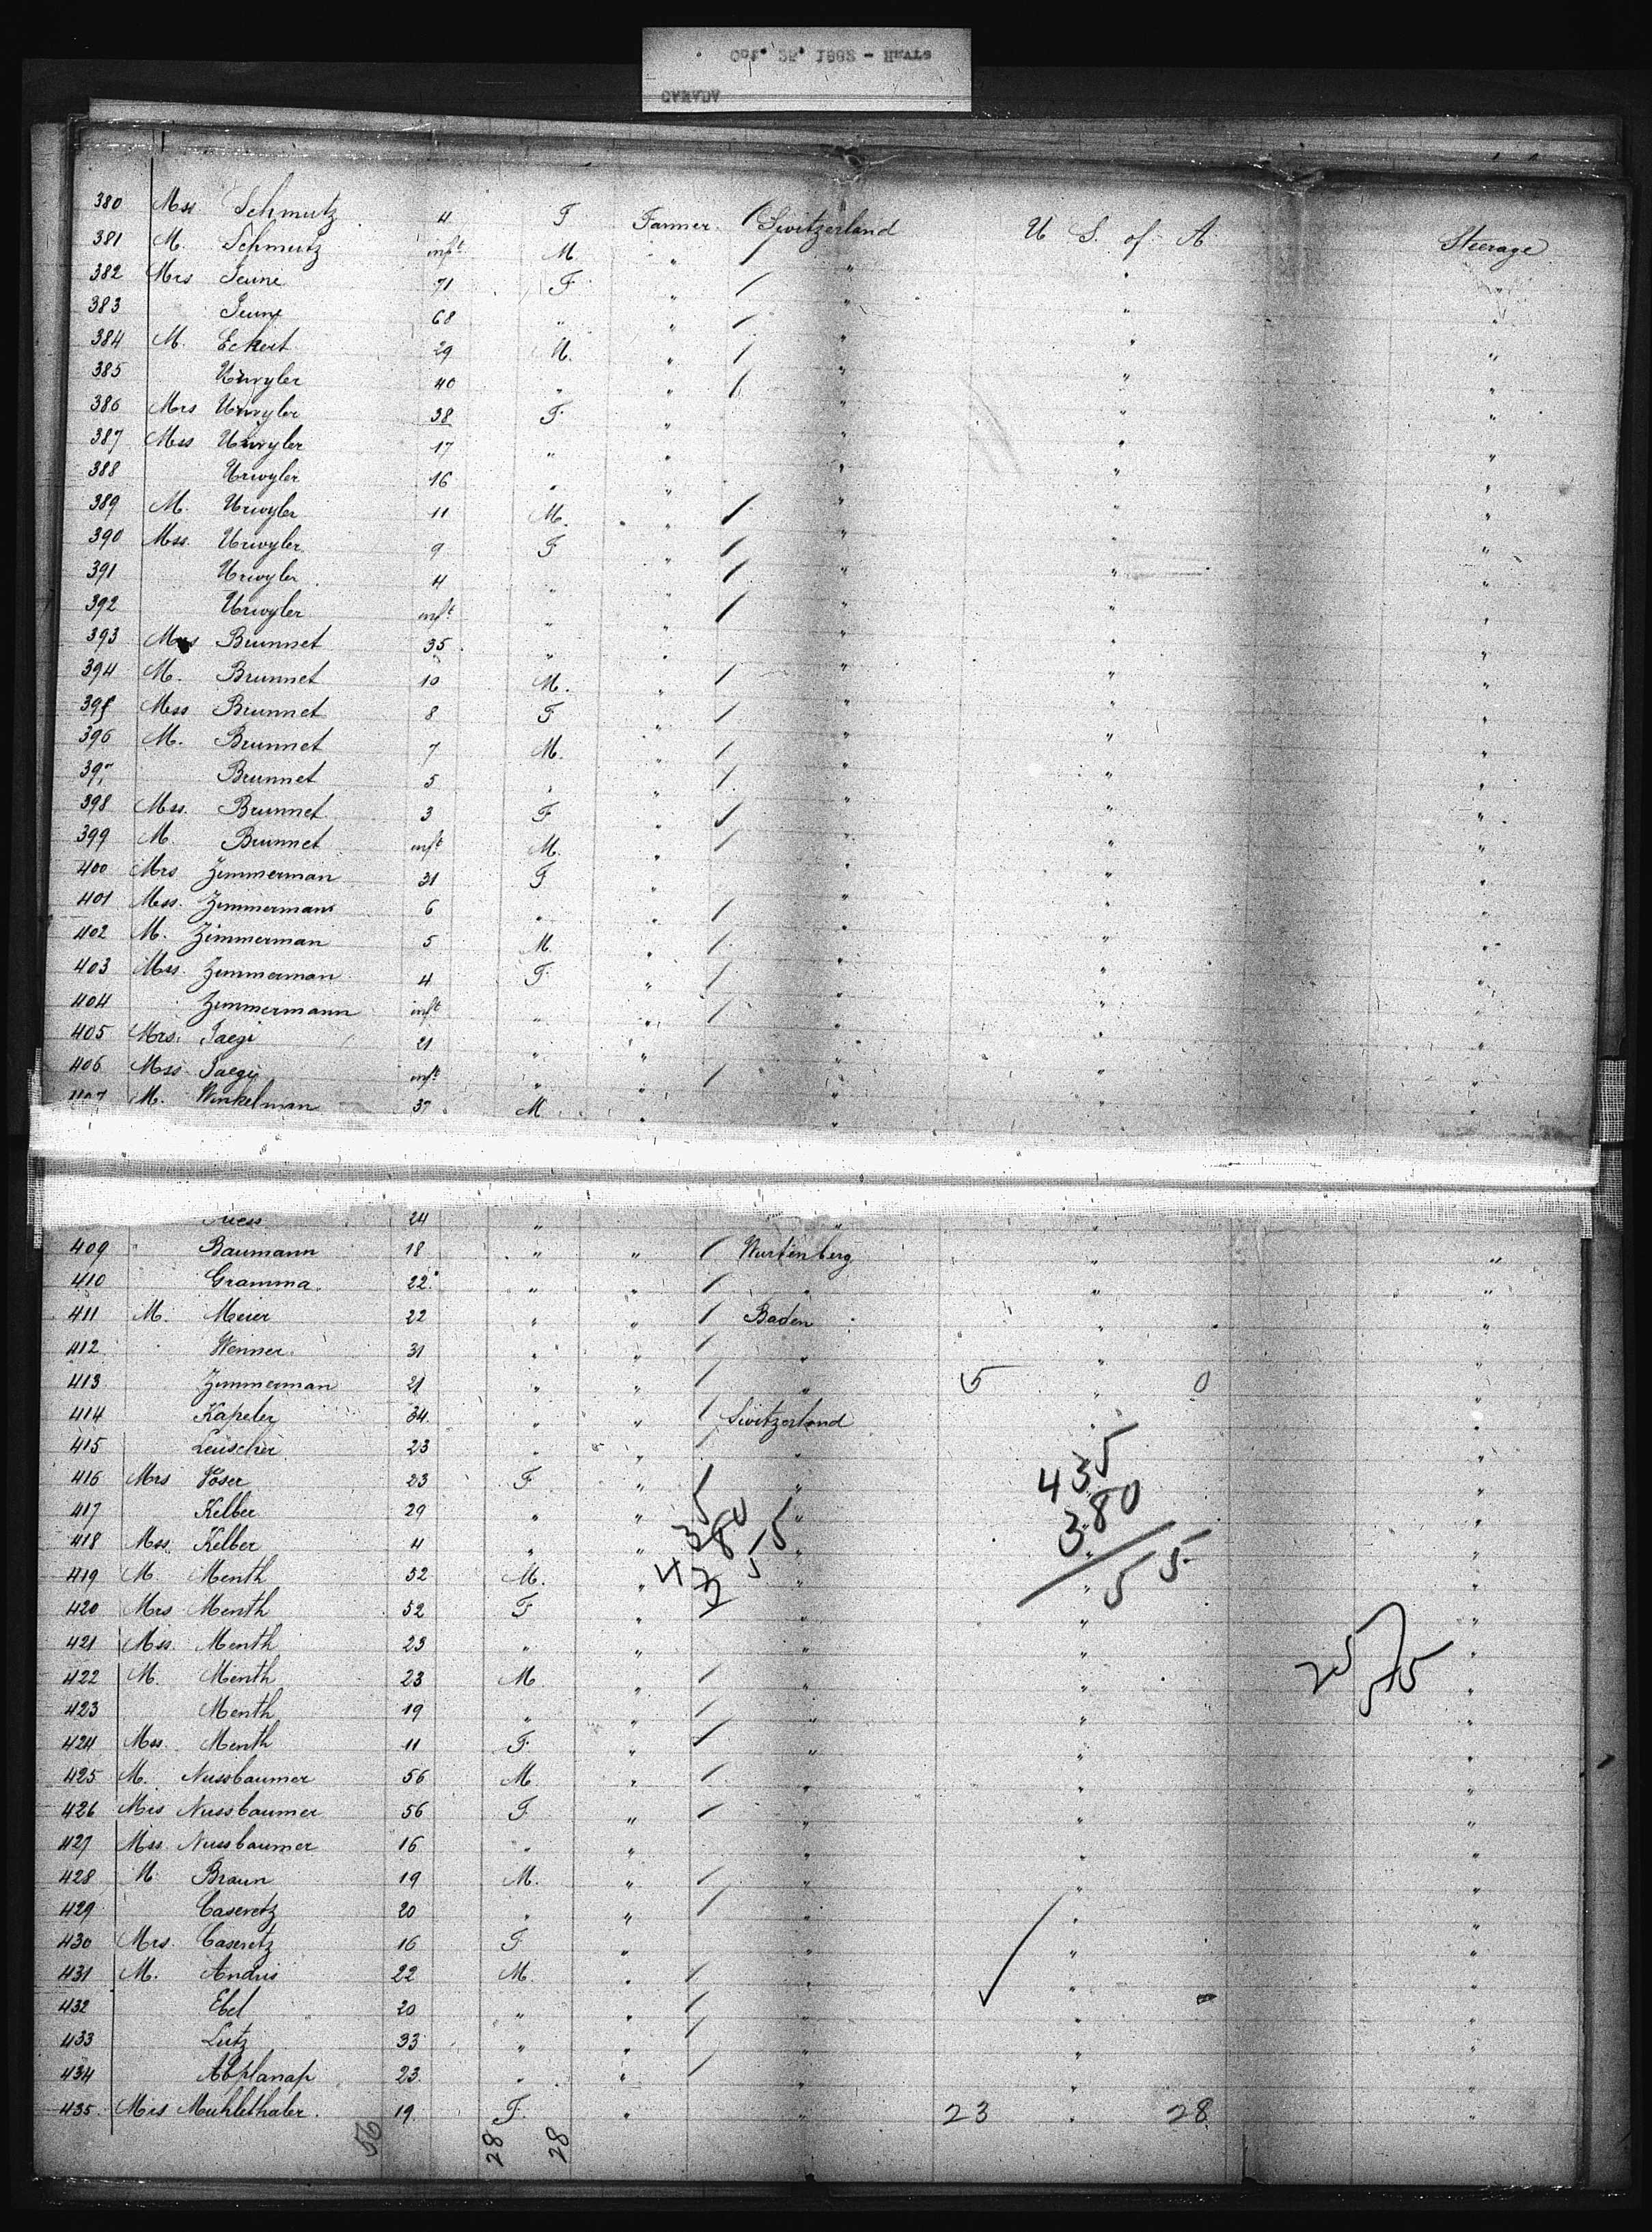 380 Mss Schmutz 4 F Farmer / Switzerland U S. of A Steerage
381 M. Schmutz inft M. " / " " "
382 Mrs Jeune 71 F " / " " "
383 Jeune 68 " " / " " "
384 M. Eckert 29 M. " / " " "
385 Urwyler 40 " " / " " "
386 Mrs Urwyler 38 F " " " "
387 Mss Urwyler 17 " " " " "
388 Urwyler 16 " " " " "
389 M. Urwyler 11 M. " / " " "
390 Mss. Urwyler 9 F " / " " "
391 Urwyler 4 " " / " " "
392 Urwyler inft " " / " " "
393 Mrs Brunnet 35 " " " " "
394 M. Brunnet 10 M. " / " " "
395 Mss Brunnet 8 F " / " " "
396 M. Brunnet 7 M. " / " " "
397 Brunnet 5 " " / " " "
398 Mss. Brunnet 3 F " / " " "
399 M. Brunnet inft M. " / " " "
400 Mrs Zimmerman 31 F " " " "
401 Mss. Zimmerman 6 " " / " " "
402 M. Zimmerman 5 M. " / " " "
403 Mss. Zimmerman 4 F " / " " "
404 Zimmermann inft " " / " " "
405 Mrs. Jaegi 21 " " " " "
406 Mss Jaegi inft " " / " " "
407 M. Winkelman 37 M " " " "
24 " " " "
409 " Baumann 18 " " / Wurtenberg " "
410 Gramma 22 " " / " " "
411 M. Meier 22 " " / Baden " "
412 Wenner 31 " " / " " "
413 Zimmerman 21 " " / " 5 " 0 "
414 Kapeler 34 " " / Switzerland " "
415 Leuscher 23 " " / " " "
416 Mrs Vöser 23 F " " 435 "
417 Kelber 29 " " " 380 "
418 Mss. Kelber 4 " " " 55 "
419 M. Menth 52 M. " " " "
420 Mrs Menth 52 F " " " "
421 Mss. Menth 23 " " " " "
422 M. Menth 23 M " / " " "
423 Menth 19 " " / " " "
424 Mss. Menth 11 F " / " " "
425 M. Nussbaumer 56 M " / " " "
426 Mrs Nussbaumer 56 F " / " " "
427 Mss. Nussbaumer 16 " " " " "
428 M. Braun 19 M. " / " " "
429 Caseretz 20 " " / " " "
430 Mrs. Caseretz 16 F " " " "
431 M. Andris 22 M. " / " " "
432 Ebel 20 " " / " " "
433 Lutz 33 " " / " " "
434 Abplanap 23 " " / " " "
435 Mrs Muhlethaler. 19 F. " " 23 " 28 "
56 28 28